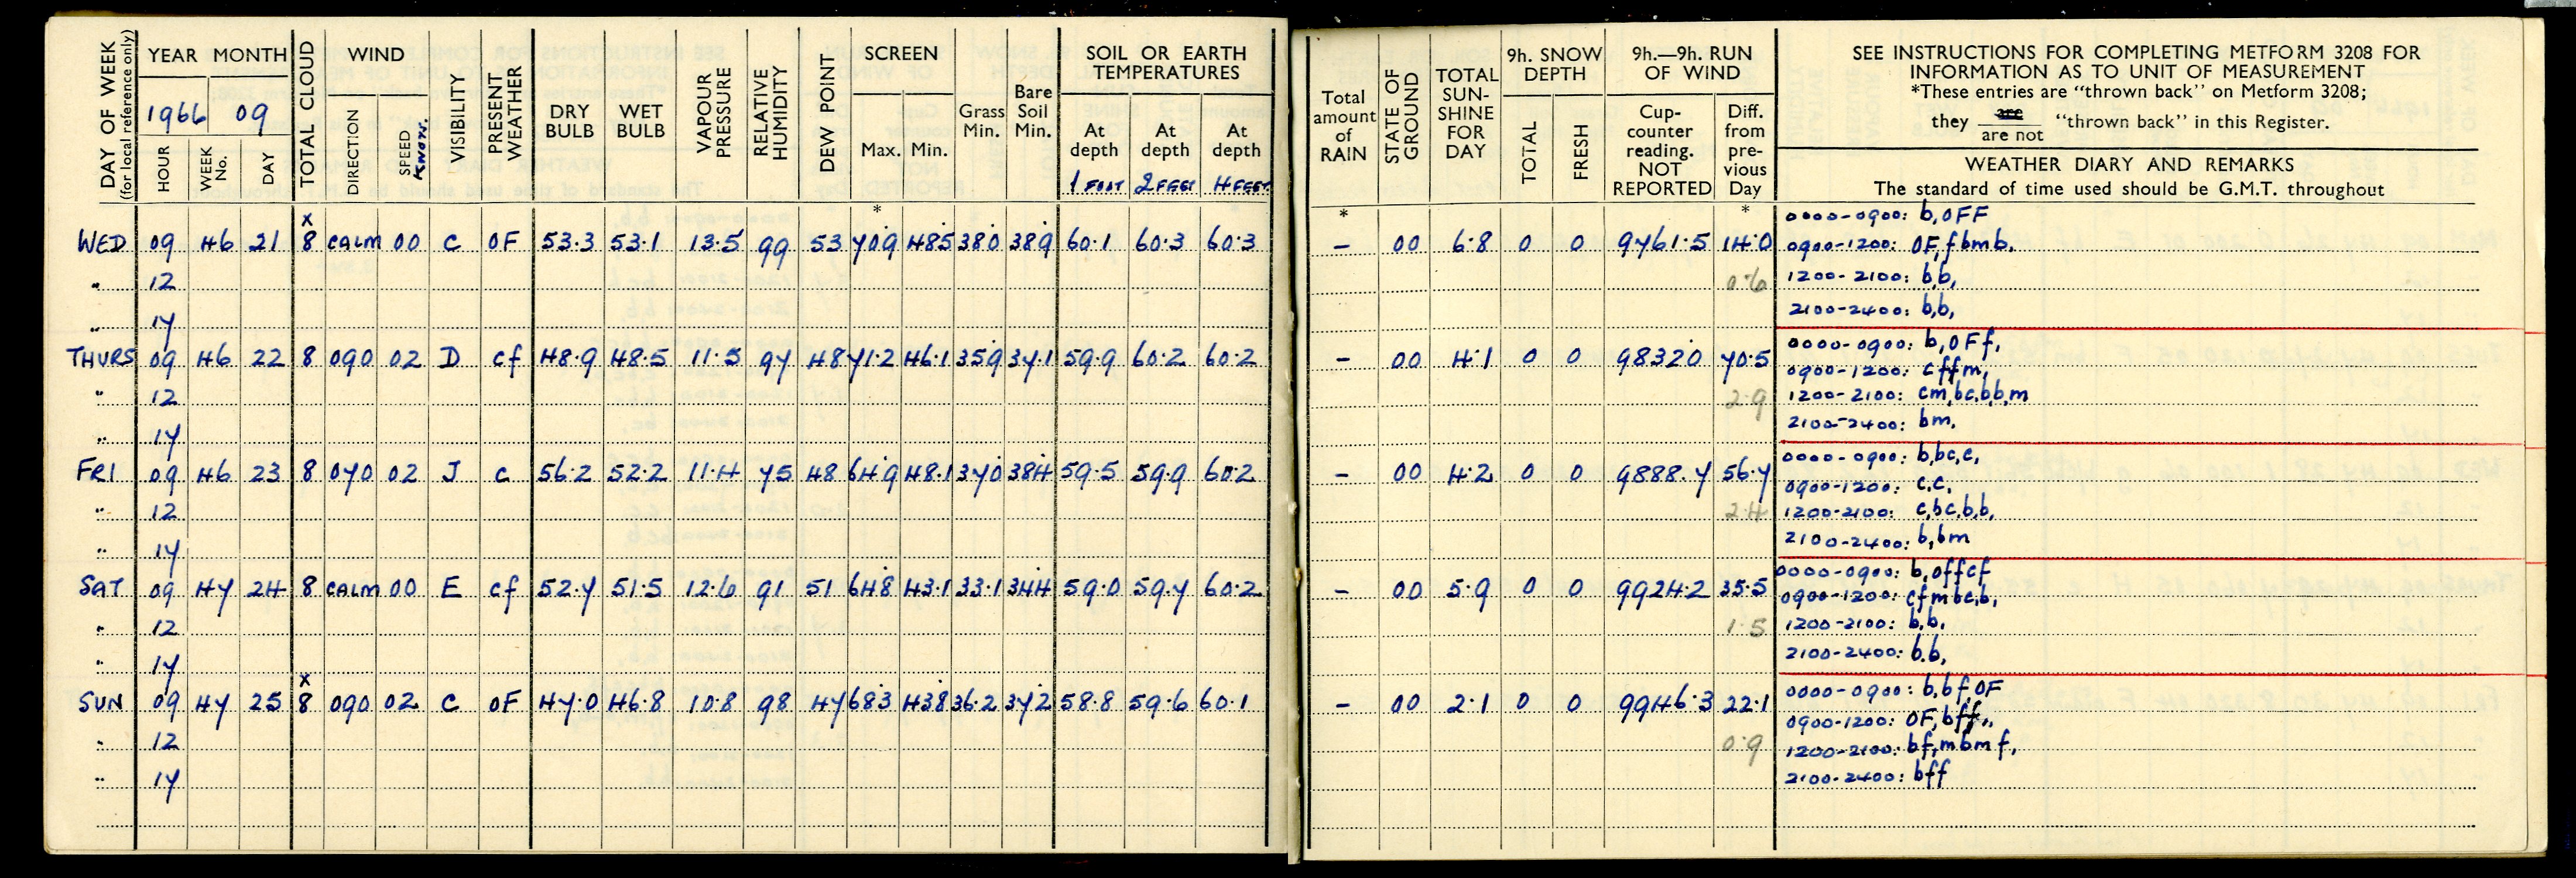 DAY OF WEEK (for local reference only)
YEAR MONTH
1966 09
HOUR WEEK No. DAY
TOTAL CLOUD
WIND
DIRECTION SPEED KNOTS.
VISIBILITY
PRESENT WEATHER
DRY BULB WET BULB
VAPOUR PRESSURE
RELATIVE HUMIDITY
DEW POINT
SCREEN
Max. Min.
Grass Min.
Bare Soil Min.
SOIL OR EARTH TEMPERATURES
At depth At depth At depth
1 FOOT 2 FEET 4 FEET
Total amount of RAIN
STATE OF GROUND
TOTAL SUN-SHINE FOR DAY
9h. SNOW DEPTH
TOTAL FRESH
9h.—9h. RUN OF WIND
Cup-counter reading. NOT REPORTED
Diff. from pre-vious Day
SEE INSTRUCTIONS FOR COMPLETING METFORM 3208 FOR
INFORMATION AS TO UNIT OF MEASUREMENT
*These entries are "thrown back" on Metform 3208;
they are / are not "thrown back" in this Register.
WEATHER DIARY AND REMARKS
The standard of time used should be G.M.T. throughout
x * * *
WED 09 46 21 8 CALM 00 C OF 53.3 53.1 13.5 99 53 70.9 48.5 38.0 38.9 60.1 60.3 60.3 – 00 6.8 0 0 9761.5 14.0
0000-0900: b,OFF
0900-1200: OF,fbmb,
" 12 0.6 1200-2100: b,b,
" 17 2100-2400: b,b,
THURS 09 46 22 8 090 02 D cf 48.9 48.5 11.5 97 48 71.2 46.1 35.9 37.1 59.9 60.2 60.2 – 00 4.1 0 0 9832.0 70.5
0000-0900: b,OFf,
0900-1200: cffm,
" 12 2.9 1200-2100: cm,bc,b,b,m
" 17 2100-2400: bm,
FRI 09 46 23 8 070 02 J c 56.2 52.2 11.4 75 48 64.9 48.1 37.0 38.4 59.5 59.9 60.2 – 00 4.2 0 0 9888.7 56.7
0000-0900: b,bc,c,
0900-1200: c,c,
" 12 2.4 1200-2100: c,bc,b,b,
" 17 2100-2400: b,bm
SAT 09 47 24 8 CALM 00 E cf 52.7 51.5 12.6 91 51 64.8 43.1 33.1 34.4 59.0 59.7 60.2 – 00 5.9 0 0 9924.2 35.5
0000-0900: b,offcf
0900-1200: cfmbc,b,
" 12 1.5 1200-2100: b,b,
" 17 2100-2400: b,b,
x
SUN 09 47 25 8 090 02 C OF 47.0 46.8 10.8 98 47 68.3 43.8 36.2 37.2 58.8 59.6 60.1 – 00 2.1 0 0 9946.3 22.1
0000-0900: b,bf,OF
0900-1200: OF,bff,,
" 12 0.9 1200-2100: bf,mbmf,
" 17 2100-2400: bff